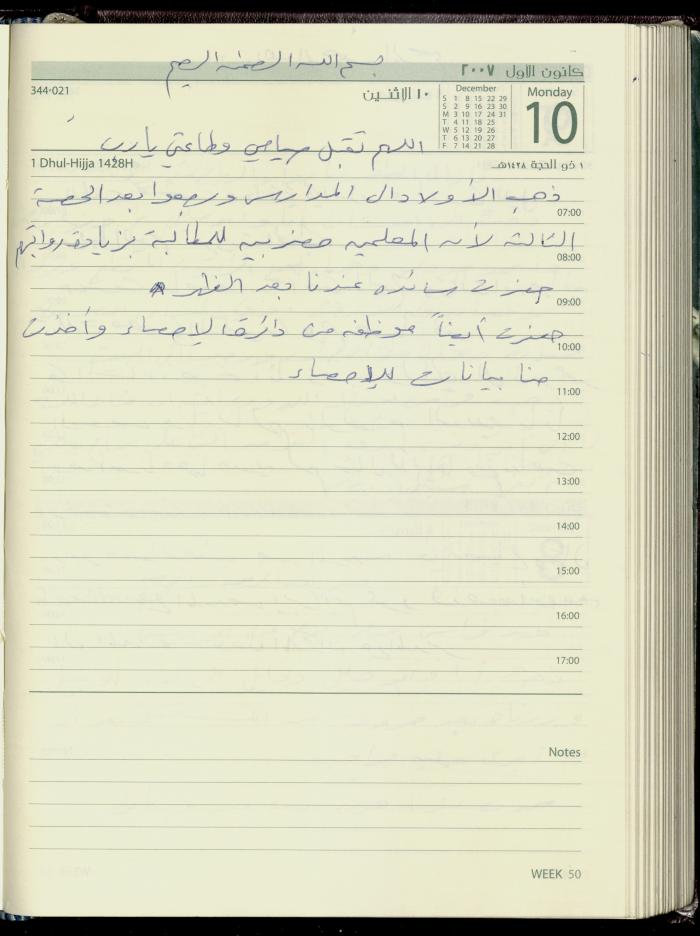 بسم الله الرحمن الرحيم
كانون الأول ٢٠٠٧
344-021
١٠ الاثنين
December
S 1 8 15 22 29
S 2 9 16 23 30
M 3 10 17 24 31
T 4 11 18 25
W 5 12 19 26
T 6 13 20 27
F 7 14 21 28
Monday
10
اللهم تقبل صيامي وطاعتي يا رب
1 Dhul-Hijja 1428H
١ ذو الحجة ١٤٢٨هـ
ذهب الأولاد الى المدارس ورجعوا بعد الحصة
07:00
الثالثة لأن المعلمين مضربين للمطالبة بزيادة رواتبهم
08:00
حضرت سائده عندنا بعد الظهر
09:00
حضرت أيضاً موظفه من دائرة الإحصاء وأخذت
10:00
منا بيانات للإحصاء
11:00
12:00
13:00
14:00
15:00
16:00
17:00
Notes
WEEK 50